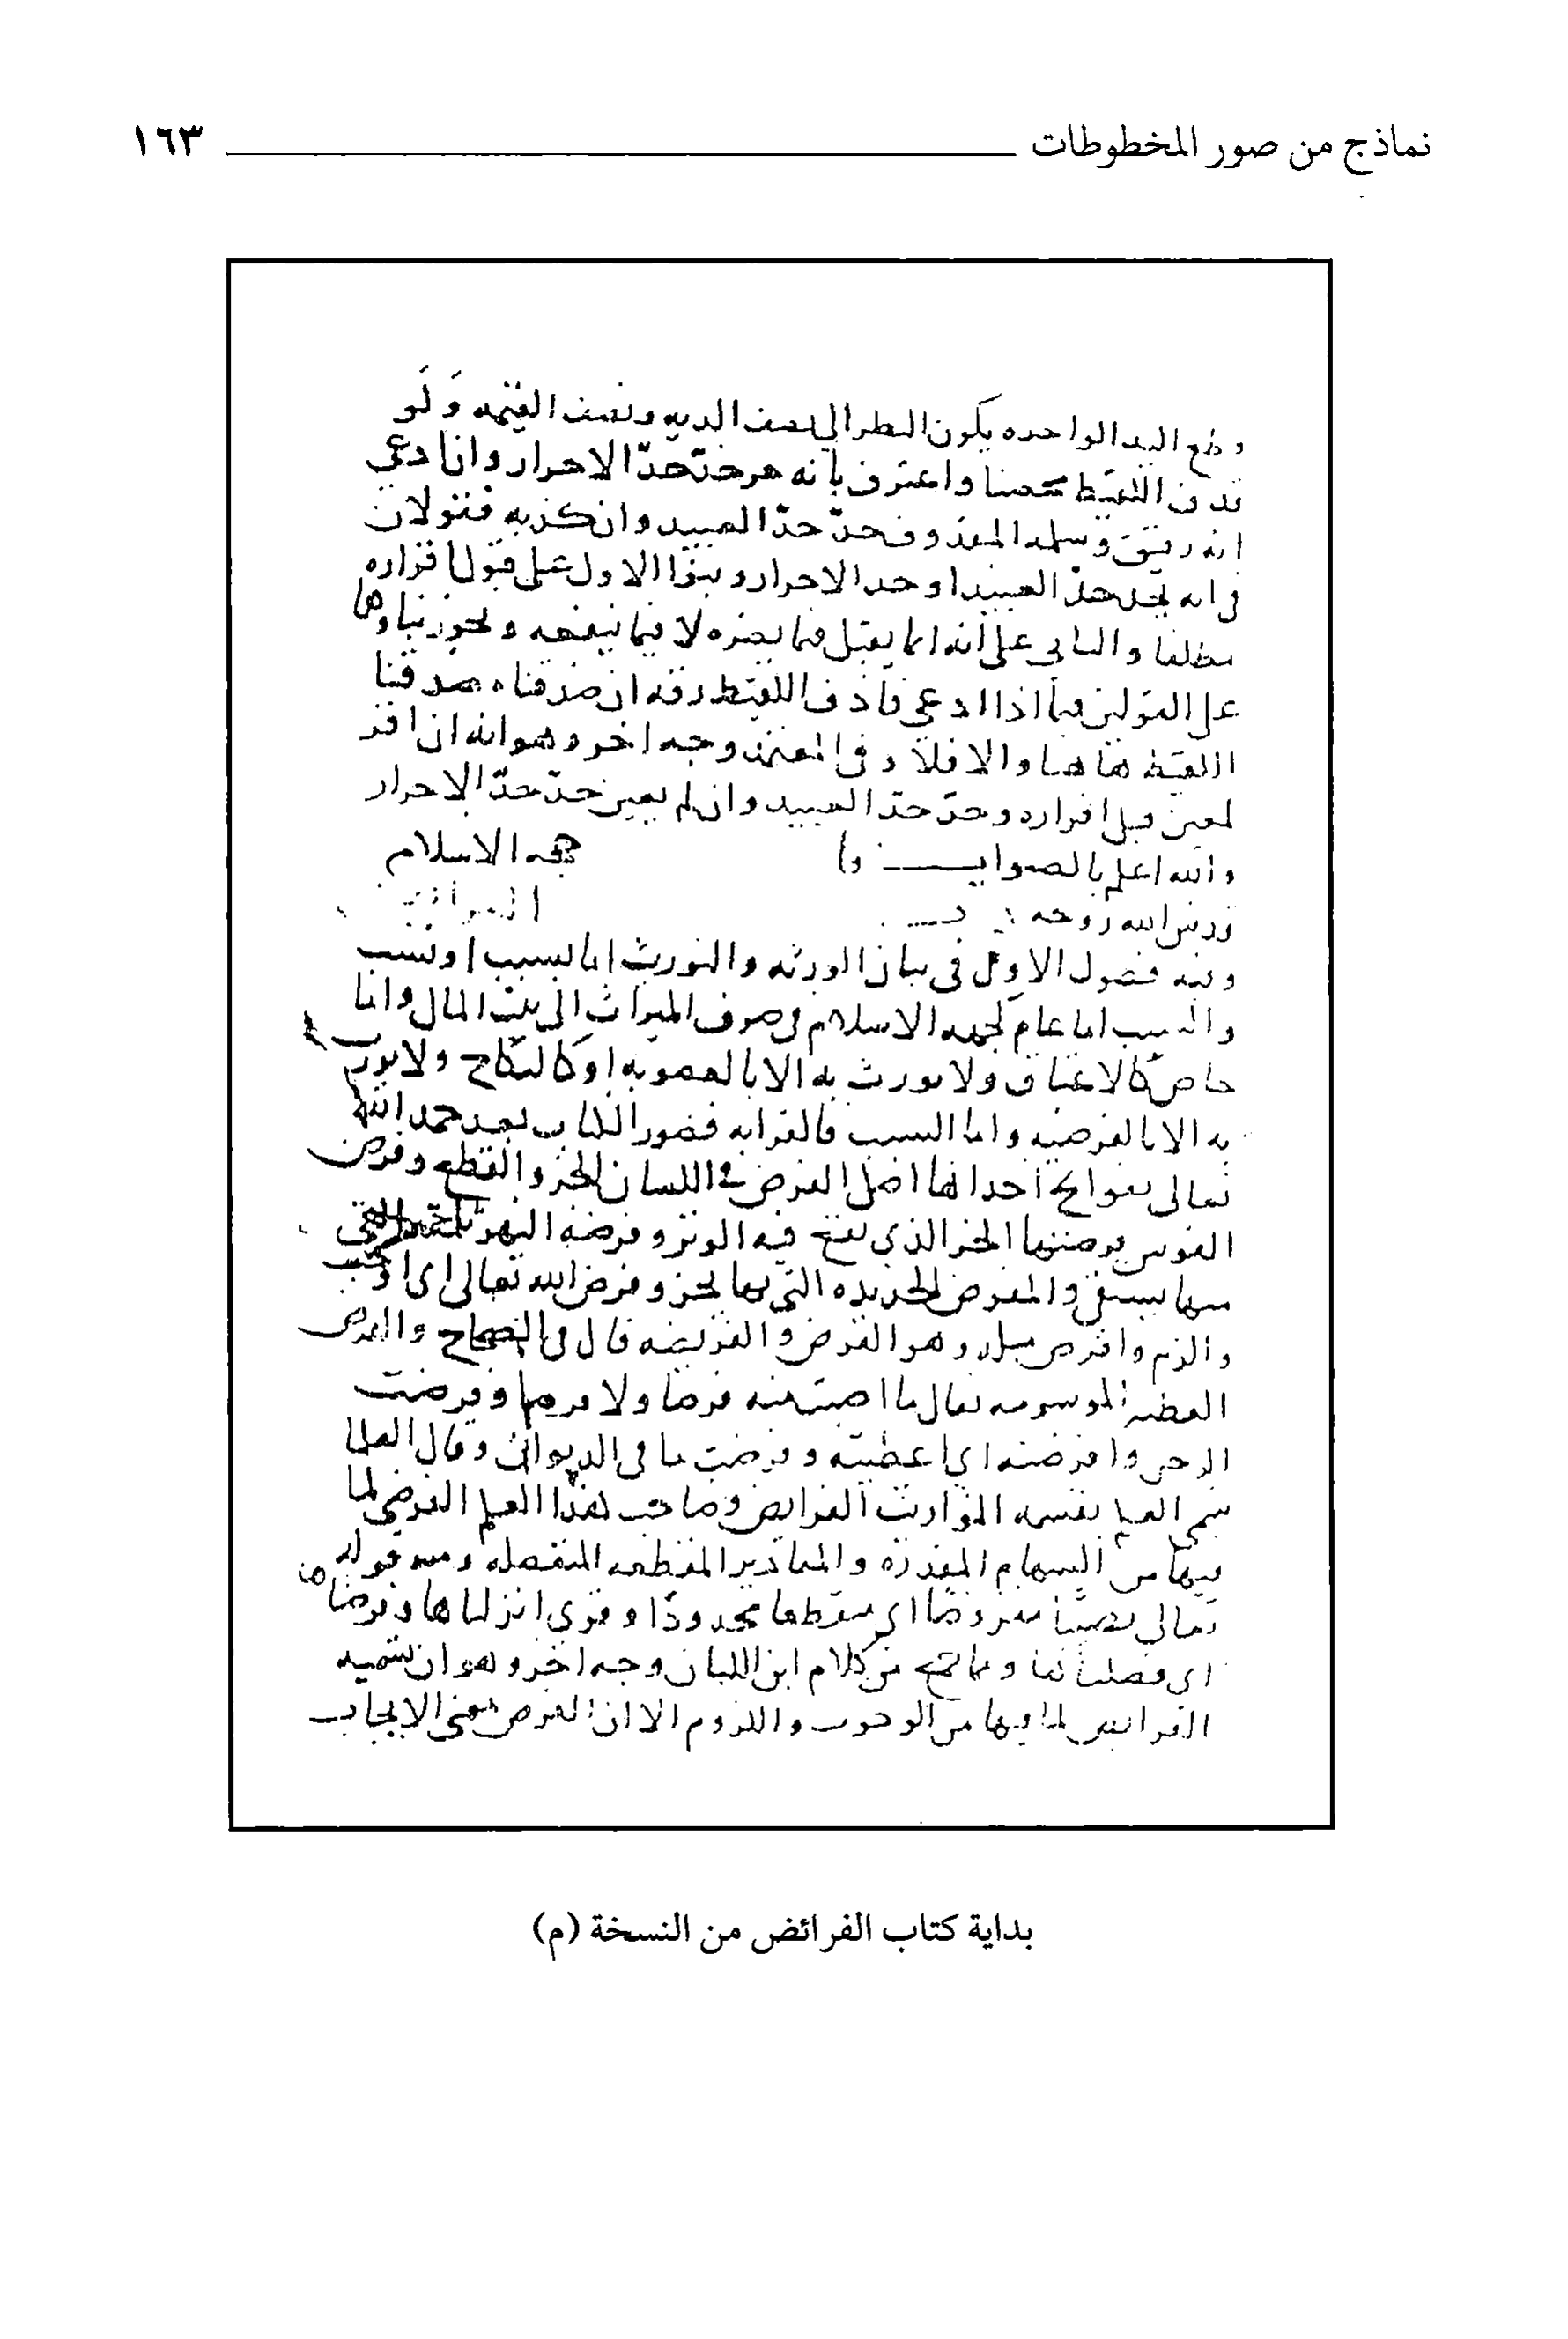 نماذج من صور المخطوطات ١٦٣
وقطع اليد الواحده يكون النظر الى نصف الديه ونصف القيمه ولو
قذف اللقيط محصنا واعترف بانه حر حدّ حدّ الاحرار وان ادعي
انه رقيق وسلمه المقذوف حدّ حدّ العبيد وان كذبه فقولان
في انه يحد حدّ العبيد او حد الاحرار وبنوا الاول على قبول اقراره
مطلقا والثاني على انه انما يقبل فيما يضره لا فيما ينفعه ويجوز بناوها
على القولين فيما اذا ادعي قاذف اللقيط رقه ان صدقناه صدقنا
اللقيط هاهنا والا فلا وفي المعتمد وجه اخر وهو انه ان اقر
لمعين قبل اقراره وحدّ حدّ العبيد وان لم يعين حدّ حدّ الاحرار
والله اعلم بالصواب قال حجه الاسلام
قدس الله روحه
وفيه فصول الاول في بيان الورثه والتوريث اما بسبب او نسب
والسبب اما عام كجهه الاسلام في صرف الميراث الى بيت المال واما
خاص كالاعتاق ولا يورث به الا بالعصوبه او كالنكاح ولا يورث
به الا بالفرضيه واما النسب فالقرابه فصور الكتاب بعد حمد الله
تعالى بفواتح احداها اصل الفرض في اللسان الحز والقطع وفرض
القوس فرضتها الحز الذي يقع فيه الوتر وفرضه النهر ثلمته التي
منها يستقى والمفرض الحديده التي بها يحز وفرض الله تعالى اي اوجب
والزم وافترض مثله وهو الفرض والفريضه قال في الصحاح والفرض
العطيه الموسومه يقال ما اصبت منه فرضا ولا قرضا وفرضت
الرجل وافرضته اي اعطيته وفرضت له في الديوان وقال العلما
سمي العلم بقسمه المواريث الفرايض وصاحب هذا العلم الفرضي لما
فيها من السهام المقدره والمقادير المقتطعه المنفصله ومنه قوله
تعالى نصيبا مفروضا اي مقتطعا محدودا وقوى انزلناها وفرضناها
اي فصلناها ومما تحج من كلام ابن اللبان وجه اخر وهو ان تسميه
الفرائض لما فيها من الوجوب واللزوم الا ان الفرض بمعنى الايجاب
بداية كتاب الفرائض من النسخة (م)